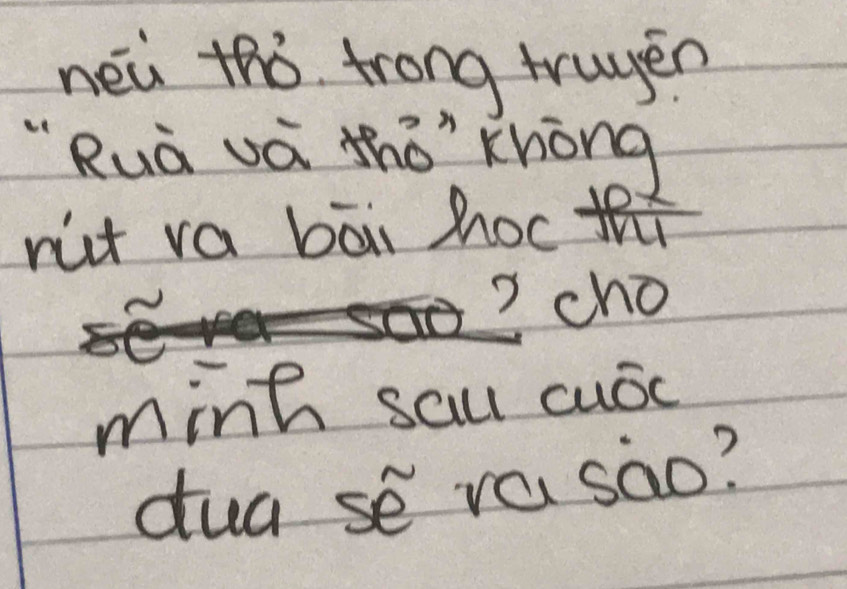 nếu thỏ trong truyện
"Rùa và thỏ" không
rút ra bài học thì
sẽ ra sao? cho
mình sau cuộc
đua sẽ ra sao?